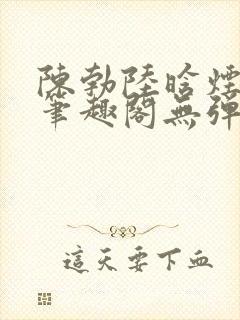 陳勃陸晗煙
筆趣閣無彈
這天要下血